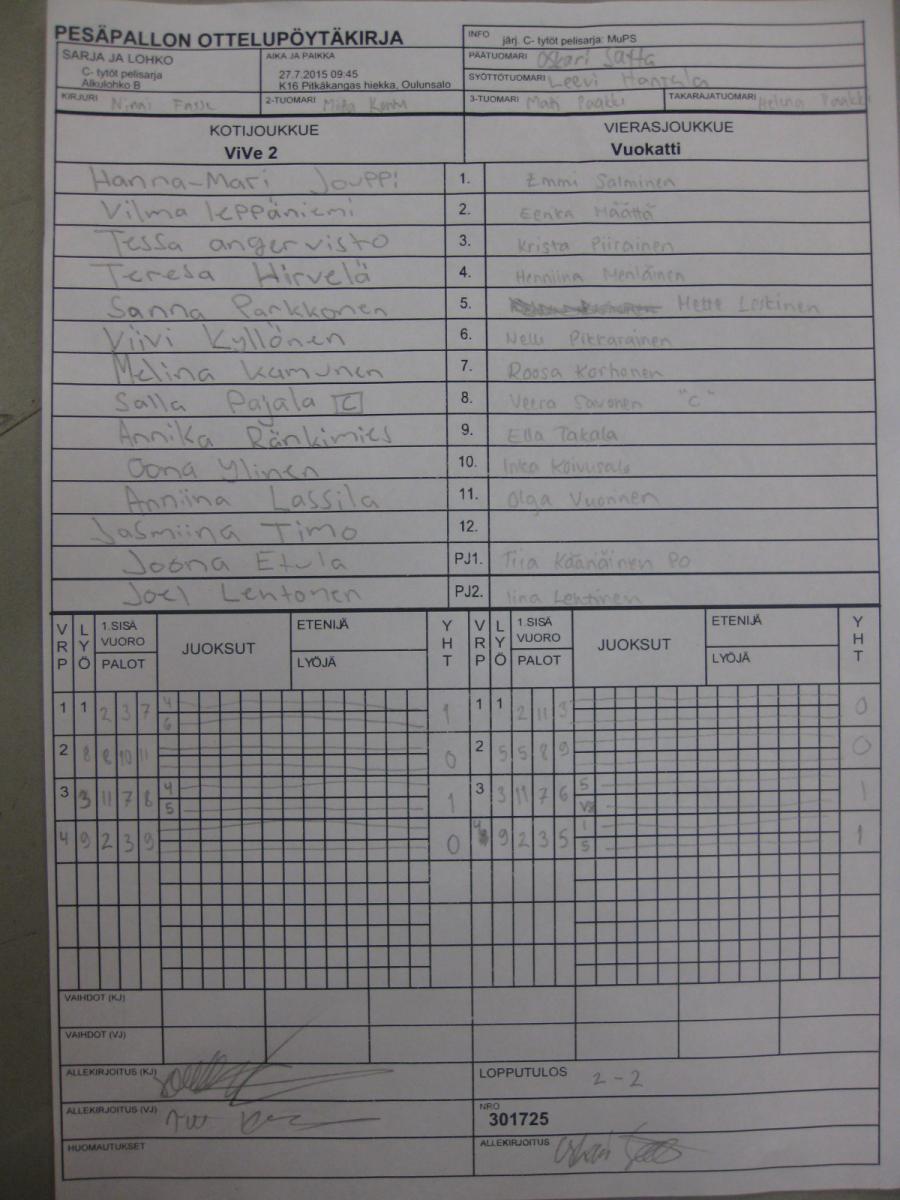 PESÄPALLON OTTELUPÖYTÄKIRJA
INFO järj. C- tytöt pelisarja: MuPS
SARJA JA LOHKO
C- tytöt pelisarja
Alkulohko B
AIKA JA PAIKKA
27.7.2015 09:45
K16 Pitkäkangas hiekka, Oulunsalo
PÄÄTUOMARI Oskari
SYÖTTÖTUOMARI Leevi Hantula
KIRJURI Ninni
2-TUOMARI
3-TUOMARI Mati Paakki
TAKARAJATUOMARI Helena Paakki
KOTIJOUKKUE VIERASJOUKKUE
ViVe 2 Vuokatti
Hanna-Mari Jouppi 1. Emmi Salminen
Vilma leppäniemi 2. Eerika Määttä
Tessa angervisto 3. Krista Piirainen
Teresa Hirvelä 4. Henniina
Sanna Parkkonen 5. Mette Leskinen
Viivi Kyllönen 6. Nelli Pikkarainen
Melina Kamunen 7. Roosa Korhonen
Salla Pajala C 8. Veera Savonen "C"
Annika Ränkimies 9. Ella Takala
Oona Ylinen 10. Inka Koivusalo
Anniina Lassila 11. Olga Vuorinen
Jasmiina Timo 12.
Joona Etula PJ1. Tiia Kääriäinen PO
Joel Lehtonen PJ2. Iina Lehtinen
VRP LYÖ 1.SISÄ VUORO PALOT JUOKSUT ETENIJÄ LYÖJÄ YHT VRP LYÖ 1.SISÄ VUORO PALOT JUOKSUT ETENIJÄ LYÖJÄ YHT
1 1 2 3 7 4 6 1 1 1 2 11 3 0
2 8 8 10 11 0 2 5 5 8 9 0
3 3 11 7 8 4 5 1 3 3 11 7 6 5 1
4 9 2 3 9 0 4 9 2 3 5 1 5 1
VAIHDOT (KJ)
VAIHDOT (VJ)
ALLEKIRJOITUS (KJ)
LOPPUTULOS 2-2
ALLEKIRJOITUS (VJ)
NRO
301725
HUOMAUTUKSET
ALLEKIRJOITUS